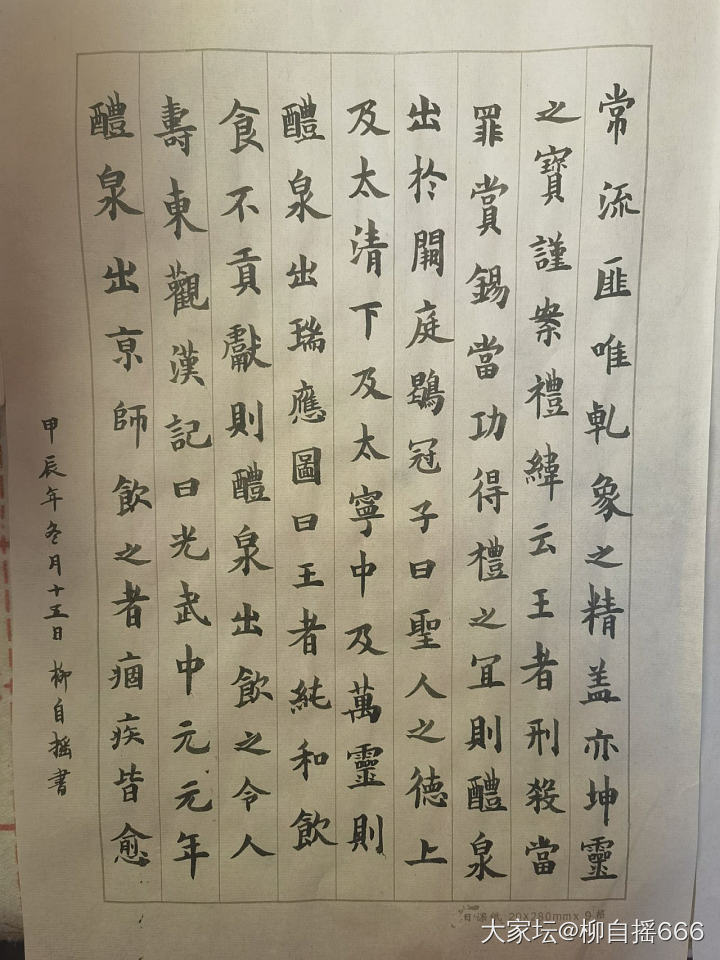 常流匪唯乹象之精盖亦坤靈
之寶謹案禮緯云王者刑殺當
罪賞錫當功得禮之宜則醴泉
出於闕庭鶡冠子曰聖人之德上
及太清下及太寧中及萬靈則
醴泉出瑞應圖曰王者純和飲
食不貢獻則醴泉出飲之令人
壽東觀漢記曰光武中元元年
醴泉出京師飲之者痼疾皆愈
甲辰年冬月十五日 柳自摇書
20X280mmx9格
大家坛@柳自摇666